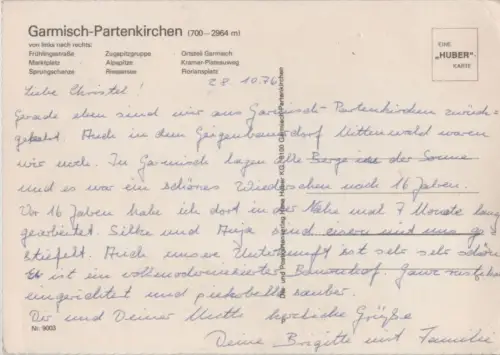 Garmisch-Partenkirchen (700—2964 m)
von links nach rechts:
Frühlingstraße Zugspitzgruppe Ortsteil Garmisch
Marktplatz Alpspitze Kramer-Plateauweg
Sprungschanze Riessersee Floriansplatz
EINE
„HUBER"
KARTE
28.10.76
Liebe Christel!
Gerade eben sind wir aus Garmisch-Partenkirchen zurück-
gekehrt. Auch in dem Geigenbauerdorf Mittenwald waren
wir noch. In Garmisch lagen alle Berge in der Sonne
und es war ein schönes Wiedersehen nach 16 Jahren.
Vor 16 Jahren habe ich dort in der Nähe mal 7 Monate lang
gearbeitet. Silke und Anja sind eisern mit uns ge-
stiefelt. Auch unsere Unterkunft ist sehr sehr schön
Es ist ein vollmodernisierter Bauernhof. Ganz
eingerichtet und pikobello sauber.
Dir und Deiner Mutti herzliche Grüße
Deine Brigitte mit Familie
Nr. 9003
Huber KG, 8100 Garmisch-Partenkirchen